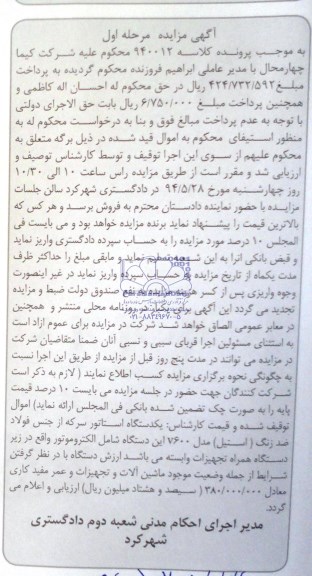 آگهی مزایده مرحله اول
به موجب پرونده کلاسه ۹۴۰۰۱۲ محکوم علیه شرکت کیما
چهارمحال با مدیر عاملی ابراهیم فروزنده محکوم گردیده به پرداخت
مبلغ ۴۲۴/۷۳۲/۵۹۲ ریال در حق محکوم له احسان اله کاظمی و
همچنین پرداخت مبلغ ۶/۷۵۰/۰۰۰ ریال بابت حق الاجرای دولتی
با توجه به عدم پرداخت مبالغ فوق و بنا به درخواست محکوم له به
منظور استیفای محکوم به اموال قید شده در ذیل برگه متعلق به
محکوم علیهم از سوی این اجرا توقیف و توسط کارشناس توصیف و
ارزیابی شد و مقرر است از طریق مزایده راس ساعت ۱۰ الی ۱۰/۳۰
روز چهارشنبه مورخ ۹۴/۵/۲۸ در دادگستری شهرکرد سالن جلسات
مزایده با حضور نماینده دادستان محترم به فروش برسد و هر کس که
بالاترین قیمت را پیشنهاد نماید برنده مزایده خواهد بود و می بایست فی
المجلس ۱۰ درصد مورد مزایده را به حساب سپرده دادگستری واریز نماید
و قبض بانکی انرا به این شعبه تسلیم نماید و مابقی مبلغ را حداکثر ظرف
مدت یکماه از تاریخ مزایده به حساب سپرده واریز نماید در غیر اینصورت
وجوه واریزی پس از کسر هزینه مزایده به نفع صندوق دولت ضبط و مزایده
تجدید می گردد این آگهی برای یکبار در روزنامه محلی منتشر و همچنین
در معابر عمومی الصاق خواهد شد شرکت در مزایده برای عموم ازاد است
به استثنای مسئولین اجرا قربای سببی و نسبی آنان ضمنا متقاضیان شرکت
در مزایده می توانند در مدت پنج روز قبل از مزایده از طریق این اجرا نسبت
به چگونگی نحوه برگزاری مزایده کسب اطلاع نمایند ( لازم به ذکر است
شرکت کنندگان جهت حضور در جلسه مزایده می بایست ۱۰ درصد قیمت
پایه را به صورت چک تضمین شده بانکی فی المجلس ارائه نماید) اموال
توقیف شده و قیمت کارشناس: یکدستگاه استاتور سرکه از جنس فولاد
ضد زنگ ( استیل) مدل ۷۶۰۰ این دستگاه شامل الکتروموتور واقع در زیر
دستگاه همراه تجهیزات وابسته می باشد ارزش دستگاه با در نظر گرفتن
شرایط از جمله وضعیت موجود ماشین آلات و تجهیزات و عمر مفید کاری
معادل ۳۸۰/۰۰۰/۰۰۰ ( سیصد و هشتاد میلیون ریال) ارزیابی و اعلام می
گردد
مدیر اجرای احکام مدنی شعبه دوم دادگستری
شهرکرد